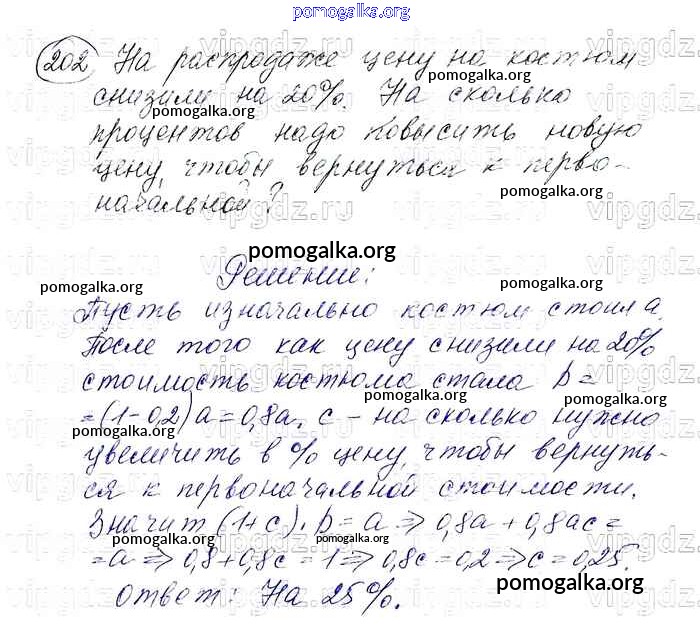 pomogalka.org
202 На распродаже цену на костюм
снизили на 20%. На сколько
процентов надо повысить новую
цену, чтобы вернуться к перво-
начальной?
Решение:
Пусть изначально костюм стоил a.
После того как цену снизили на 20%
стоимость костюма стала b =
=(1-0,2)a=0,8a. c - на сколько нужно
увеличить в % цену, чтобы вернуть-
ся к первоначальной стоимости.
Значит (1+c)·b=a => 0,8a+0,8ac=
=a => 0,8+0,8c=1 => 0,8c=0,2 => c=0,25.
Ответ: На 25%.
pomogalka.org
vipgdz.ru